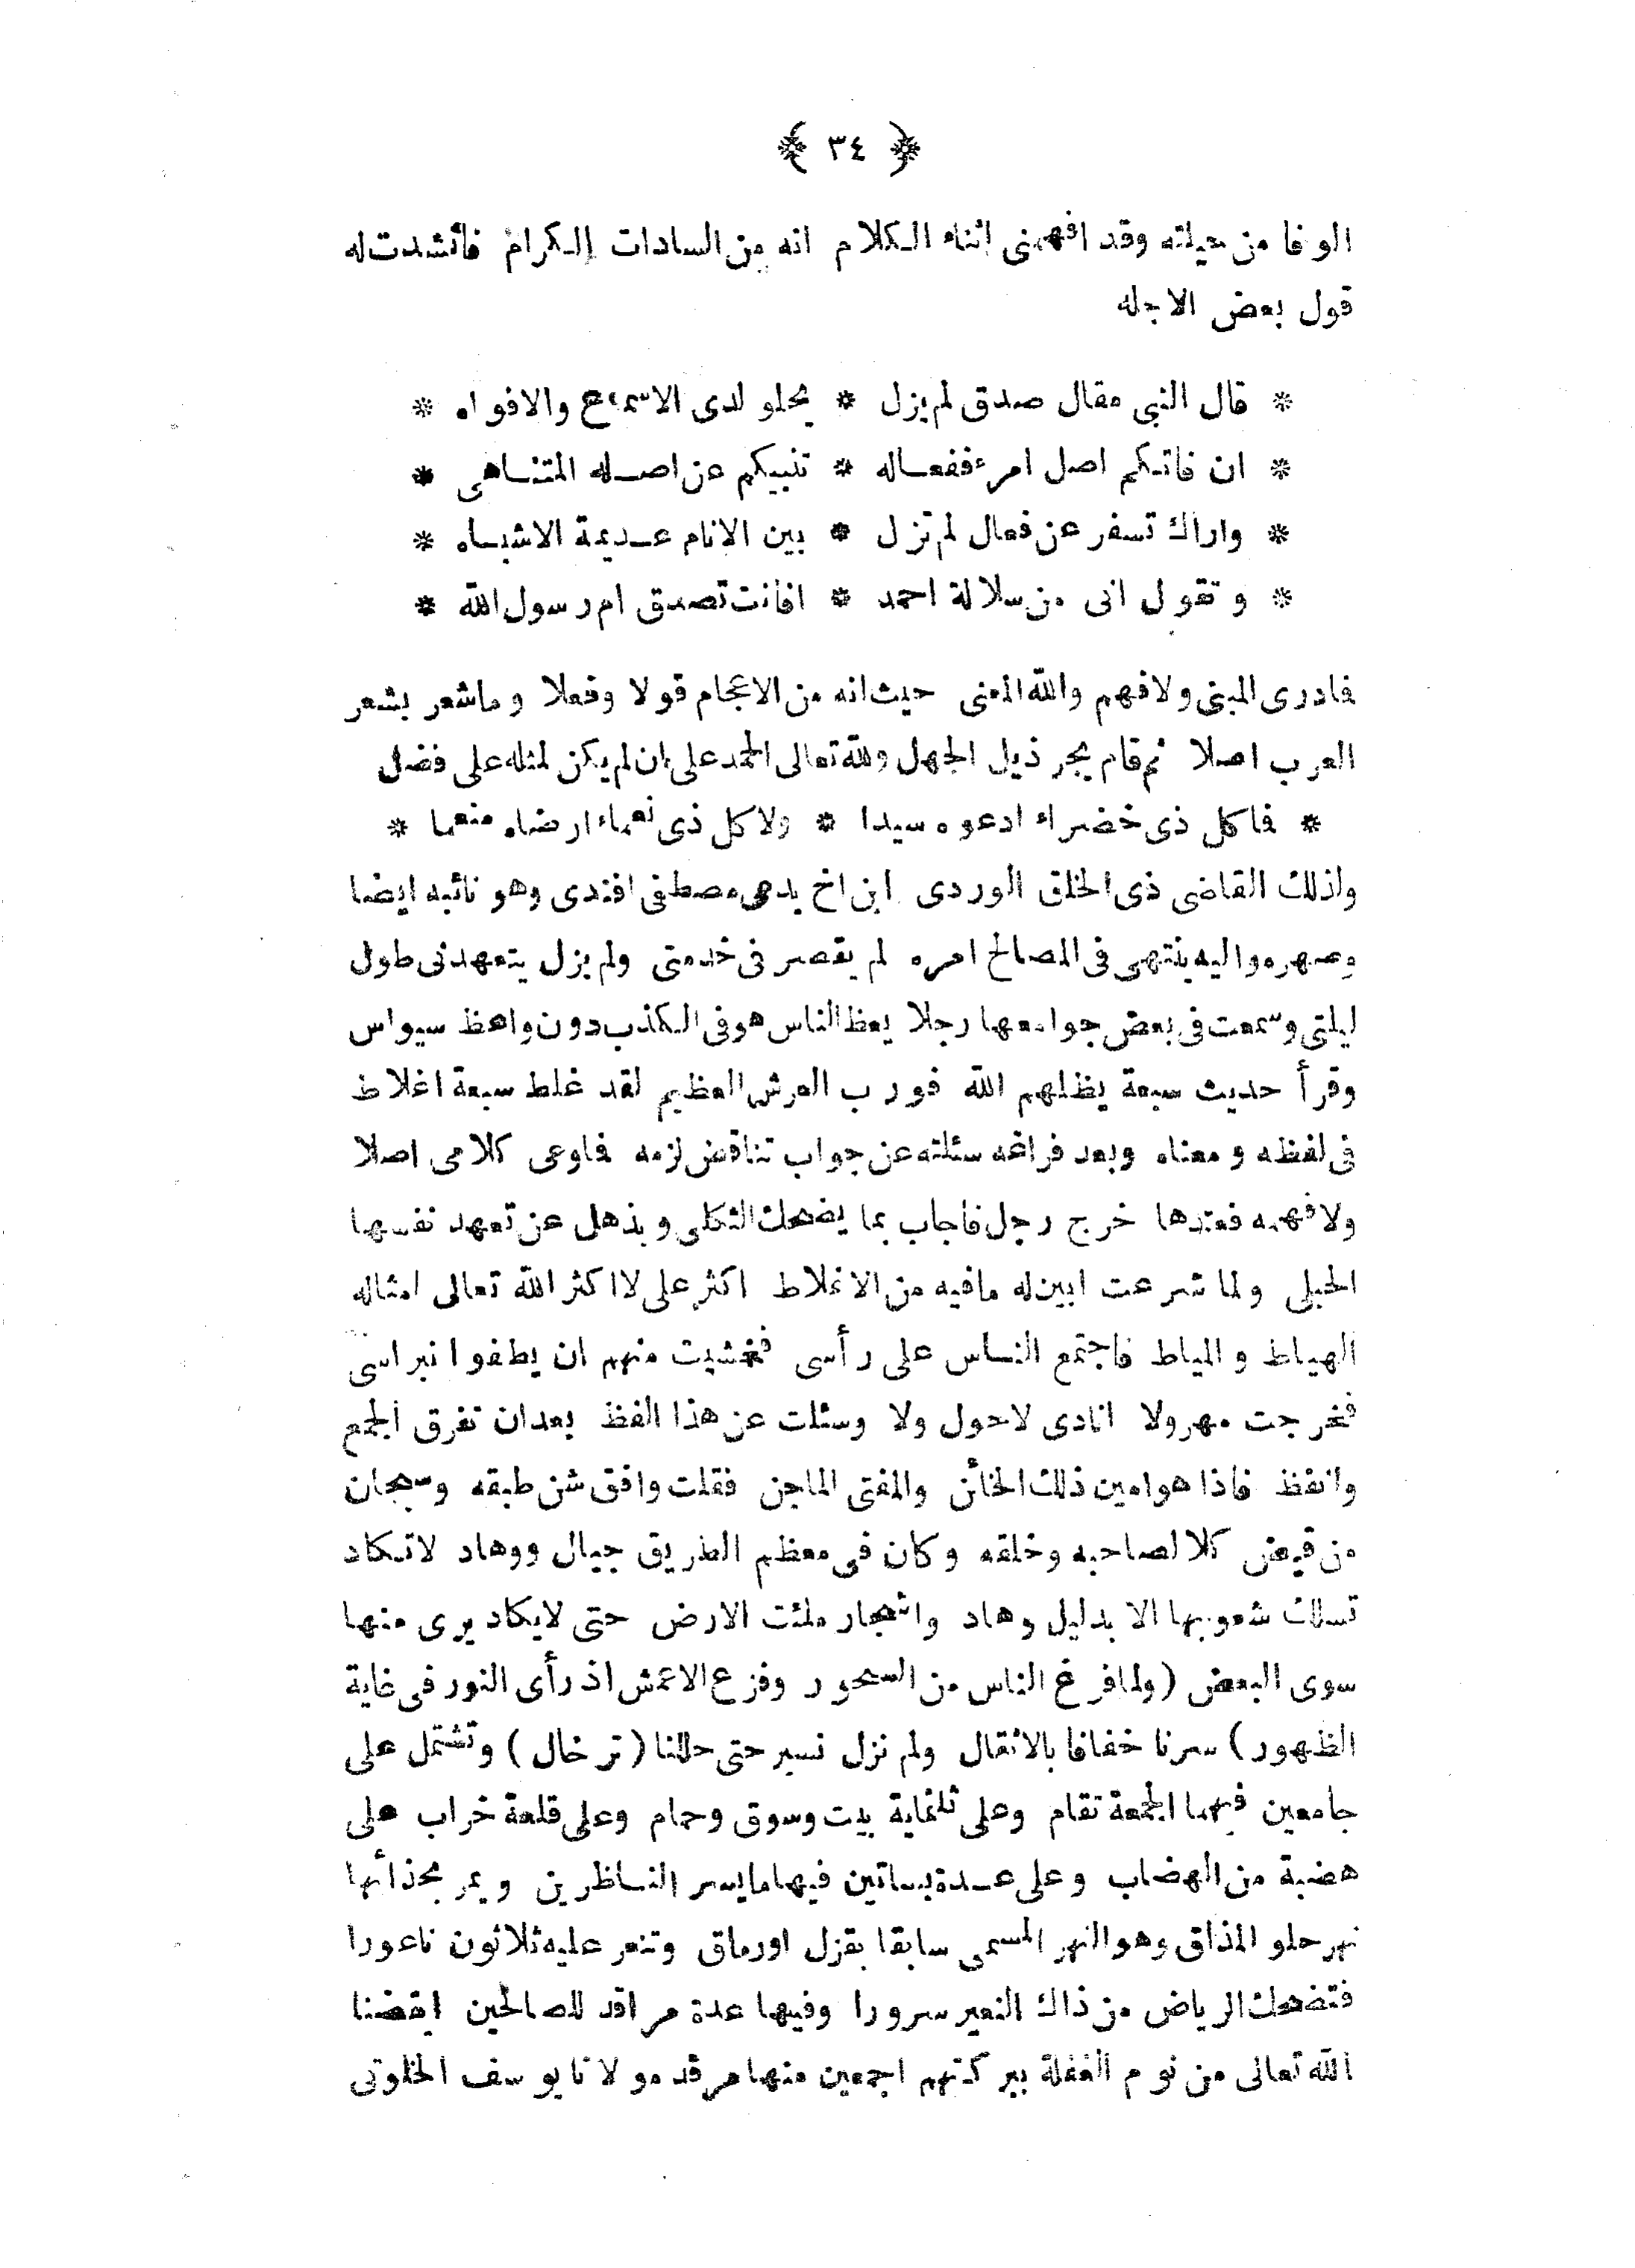 ﴿ ٣٤ ﴾
الوفا من حيلته وقد افهمنى اثناء الكلام انه من السادات الكرام فأنشدت له
قول بعض الاجله
* قال النبى مقال صدق لم يزل * يحلو لدى الاسماع والافواه *
* ان فاتكم اصل امرء ففعاله * تنبيكم عن اصله المتناهى *
* واراك تسفر عن فعال لم تزل * بين الانام عديمة الاشباه *
* وتقول انى من سلالة احمد * افانت تصدق ام رسول الله *
فادرى المبنى ولا فهم والله المعنى حيث انه من الاعجام قولا وفعلا وما شعر بشعر
العرب اصلا ثم قام يجر ذيل الجهل ولله تعالى الحمد على ان لم يكن لمثله على فضل
* فاكل ذى خضراء ادعوه سيدا * ولا كل ذى نعماء ارضاه منعما *
ولذلك القاضى ذى الخلق الوردى ابن اخ يدعى مصطفى افندى وهو نائبه ايضا
وصهره واليه ينتهى فى المصالح امره لم يقصر فى خدمتى ولم يزل يتعهدنى طول
ليلتى وسمعت فى بعض جوامعها رجلا يعظ الناس هو فى الكذب دون واعظ سيواس
وقرأ حديث سبعة يظلهم الله فورب العرش العظيم لقد غلط سبعة اغلاط
فى لفظه ومعناه وبعد فراغه سئلته عن جواب تناقض لزمه فاوعى كلامى اصلا
ولا فهمه فعندها خرج رجل فاجاب بما يضحك الثكلى ويذهل عن تعهد نفسها
الحبلى ولما شرعت ابين له ما فيه من الاغلاط اكثر على لا اكثر الله تعالى امثاله
الهياط والمياط فاجتمع الناس على رأسى فخشيت منهم ان يطفوا نبراسى
فخرجت مهرولا انادى لاحول ولا وسئلت عن هذا الفظ بعد ان تفرق الجمع
وانفظ فاذا هو امين ذلك الخائن والمفتى الماجن فقلت وافق شن طبقه وسبحان
من قيض كلا لصاحبه وخلقه وكان فى معظم الطريق جبال ووهاد لا تكاد
تسلك شعوبها الا بدليل وهاد واشجار ملئت الارض حتى لا يكاد يرى منها
سوى البعض (ولما فرغ الناس من السحور وفزع الاعمش اذ رأى النور فى غاية
الظهور) سرنا خفافا بالاثقال ولم نزل نسير حتى حللنا (ترخال) وتشتمل على
جامعين فيهما الجمعة تقام وعلى ثلثماية بيت وسوق وحمام وعلى قلعة خراب على
هضبة من الهضاب وعلى عدة بساتين فيها ما يسر الناظرين ويمر بحذائها
نهر حلو المذاق وهو النهر المسمى سابقا بقزل اورماق وتنعر عليه ثلاثون ناعورا
فتضحك الرياض من ذاك النعير سرورا وفيها عدة مراقد للصالحين ايقضنا
الله تعالى من نوم الغفلة ببركتهم اجمعين منها مرقد مولانا يوسف الخلوتى